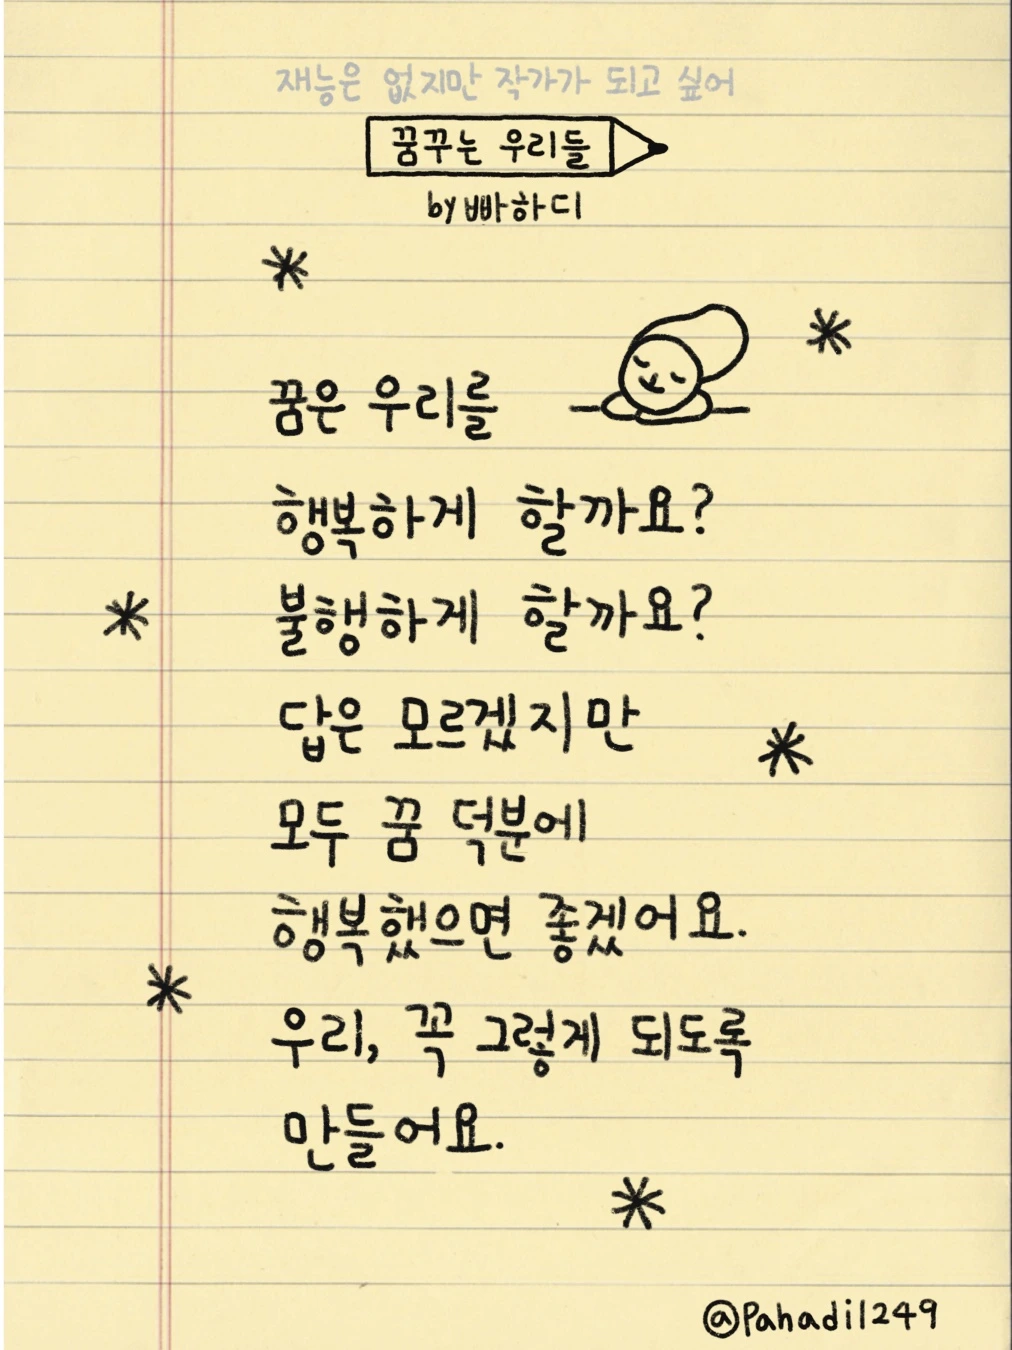 재능은 없지만 작가가 되고 싶어
꿈꾸는 우리들
by 빠하디
꿈은 우리를
행복하게 할까요?
불행하게 할까요?
답은 모르겠지만
모두 꿈 덕분에
행복했으면 좋겠어요.
우리, 꼭 그렇게 되도록
만들어요.
@Pahadi1249